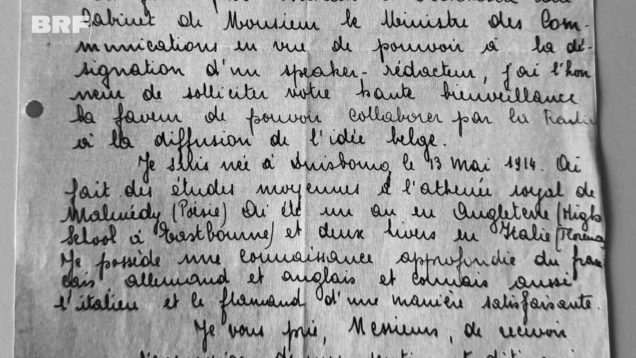 BRF
Cabinet de Monsieur le Ministre des Com-
munications en vue de pouvoir à la dé-
signation d'un speaker-rédacteur, j'ai l'hon
neur de solliciter votre haute bienveillance
la faveur de pouvoir collaborer par la Radio
à la diffusion de l'idée belge.
Je suis née à Duisbourg le 13 mai 1914. Ai
fait des études moyennes à l'athenée royal de
Malmédy (Poésie) Ai été un an en Angleterre (High
School à Eastbourne) et deux hivers en Italie (Florence
Je possède une connaissance approfondie du fran
çais allemand et anglais et connais aussi
l'italien et le flamand d'une manière satisfaisante.
Je vous prie, Messieurs, de recevoir